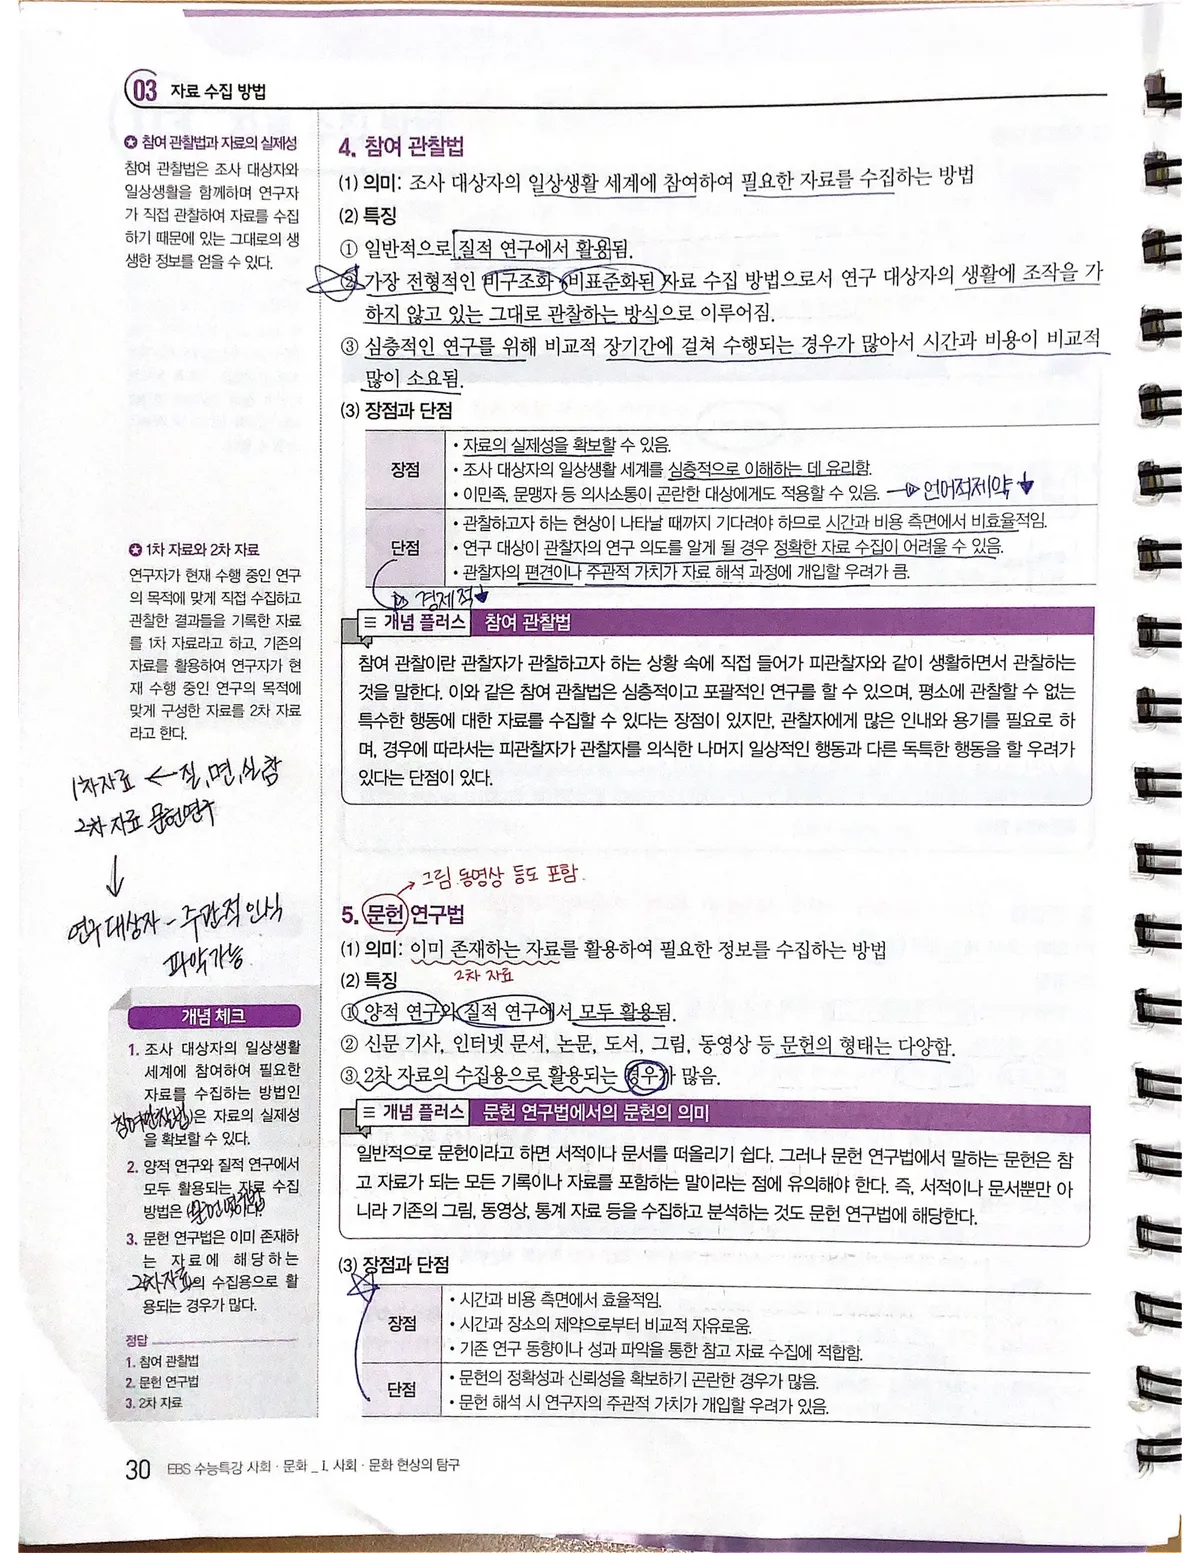 03 자료 수집 방법
✪ 참여 관찰법과 자료의 실제성
참여 관찰법은 조사 대상자와
일상생활을 함께하며 연구자
가 직접 관찰하여 자료를 수집
하기 때문에 있는 그대로의 생
생한 정보를 얻을 수 있다.
✪ 1차 자료와 2차 자료
연구자가 현재 수행 중인 연구
의 목적에 맞게 직접 수집하고
관찰한 결과들을 기록한 자료
를 1차 자료라고 하고, 기존의
자료를 활용하여 연구자가 현
재 수행 중인 연구의 목적에
맞게 구성한 자료를 2차 자료
라고 한다.
1차자료 ← 질, 면, 실, 참
2차 자료 문헌연구
↓
연구대상자 - 주관적 인식
파악가능
개념 체크
1. 조사 대상자의 일상생활
세계에 참여하여 필요한
자료를 수집하는 방법인
참여관찰법은 자료의 실제성
을 확보할 수 있다.
2. 양적 연구와 질적 연구에서
모두 활용되는 자료 수집
방법은 (문헌연구법)이다.
3. 문헌 연구법은 이미 존재하
는 자료에 해당하는
2차자료의 수집용으로 활
용되는 경우가 많다.
정답
1. 참여 관찰법
2. 문헌 연구법
3. 2차 자료
4. 참여 관찰법
(1) 의미: 조사 대상자의 일상생활 세계에 참여하여 필요한 자료를 수집하는 방법
(2) 특징
① 일반적으로 질적 연구에서 활용됨.
② 가장 전형적인 비구조화·비표준화된 자료 수집 방법으로서 연구 대상자의 생활에 조작을 가
하지 않고 있는 그대로 관찰하는 방식으로 이루어짐.
③ 심층적인 연구를 위해 비교적 장기간에 걸쳐 수행되는 경우가 많아서 시간과 비용이 비교적
많이 소요됨.
(3) 장점과 단점
장점
• 자료의 실제성을 확보할 수 있음.
• 조사 대상자의 일상생활 세계를 심층적으로 이해하는 데 유리함.
• 이민족, 문맹자 등 의사소통이 곤란한 대상에게도 적용할 수 있음. → 언어적제약↓
단점
• 관찰하고자 하는 현상이 나타날 때까지 기다려야 하므로 시간과 비용 측면에서 비효율적임.
• 연구 대상이 관찰자의 연구 의도를 알게 될 경우 정확한 자료 수집이 어려울 수 있음.
• 관찰자의 편견이나 주관적 가치가 자료 해석 과정에 개입할 우려가 큼.
경제적↓
개념 플러스 참여 관찰법
참여 관찰이란 관찰자가 관찰하고자 하는 상황 속에 직접 들어가 피관찰자와 같이 생활하면서 관찰하는
것을 말한다. 이와 같은 참여 관찰법은 심층적이고 포괄적인 연구를 할 수 있으며, 평소에 관찰할 수 없는
특수한 행동에 대한 자료를 수집할 수 있다는 장점이 있지만, 관찰자에게 많은 인내와 용기를 필요로 하
며, 경우에 따라서는 피관찰자가 관찰자를 의식한 나머지 일상적인 행동과 다른 독특한 행동을 할 우려가
있다는 단점이 있다.
그림, 동영상 등도 포함.
5. 문헌 연구법
(1) 의미: 이미 존재하는 자료를 활용하여 필요한 정보를 수집하는 방법
2차 자료
(2) 특징
① 양적 연구와 질적 연구에서 모두 활용됨.
② 신문 기사, 인터넷 문서, 논문, 도서, 그림, 동영상 등 문헌의 형태는 다양함.
③ 2차 자료의 수집용으로 활용되는 경우가 많음.
개념 플러스 문헌 연구법에서의 문헌의 의미
일반적으로 문헌이라고 하면 서적이나 문서를 떠올리기 쉽다. 그러나 문헌 연구법에서 말하는 문헌은 참
고 자료가 되는 모든 기록이나 자료를 포함하는 말이라는 점에 유의해야 한다. 즉, 서적이나 문서뿐만 아
니라 기존의 그림, 동영상, 통계 자료 등을 수집하고 분석하는 것도 문헌 연구법에 해당한다.
(3) 장점과 단점
장점
• 시간과 비용 측면에서 효율적임.
• 시간과 장소의 제약으로부터 비교적 자유로움.
• 기존 연구 동향이나 성과 파악을 통한 참고 자료 수집에 적합함.
단점
• 문헌의 정확성과 신뢰성을 확보하기 곤란한 경우가 많음.
• 문헌 해석 시 연구자의 주관적 가치가 개입할 우려가 있음.
30 EBS 수능특강 사회·문화 _ Ⅰ. 사회·문화 현상의 탐구